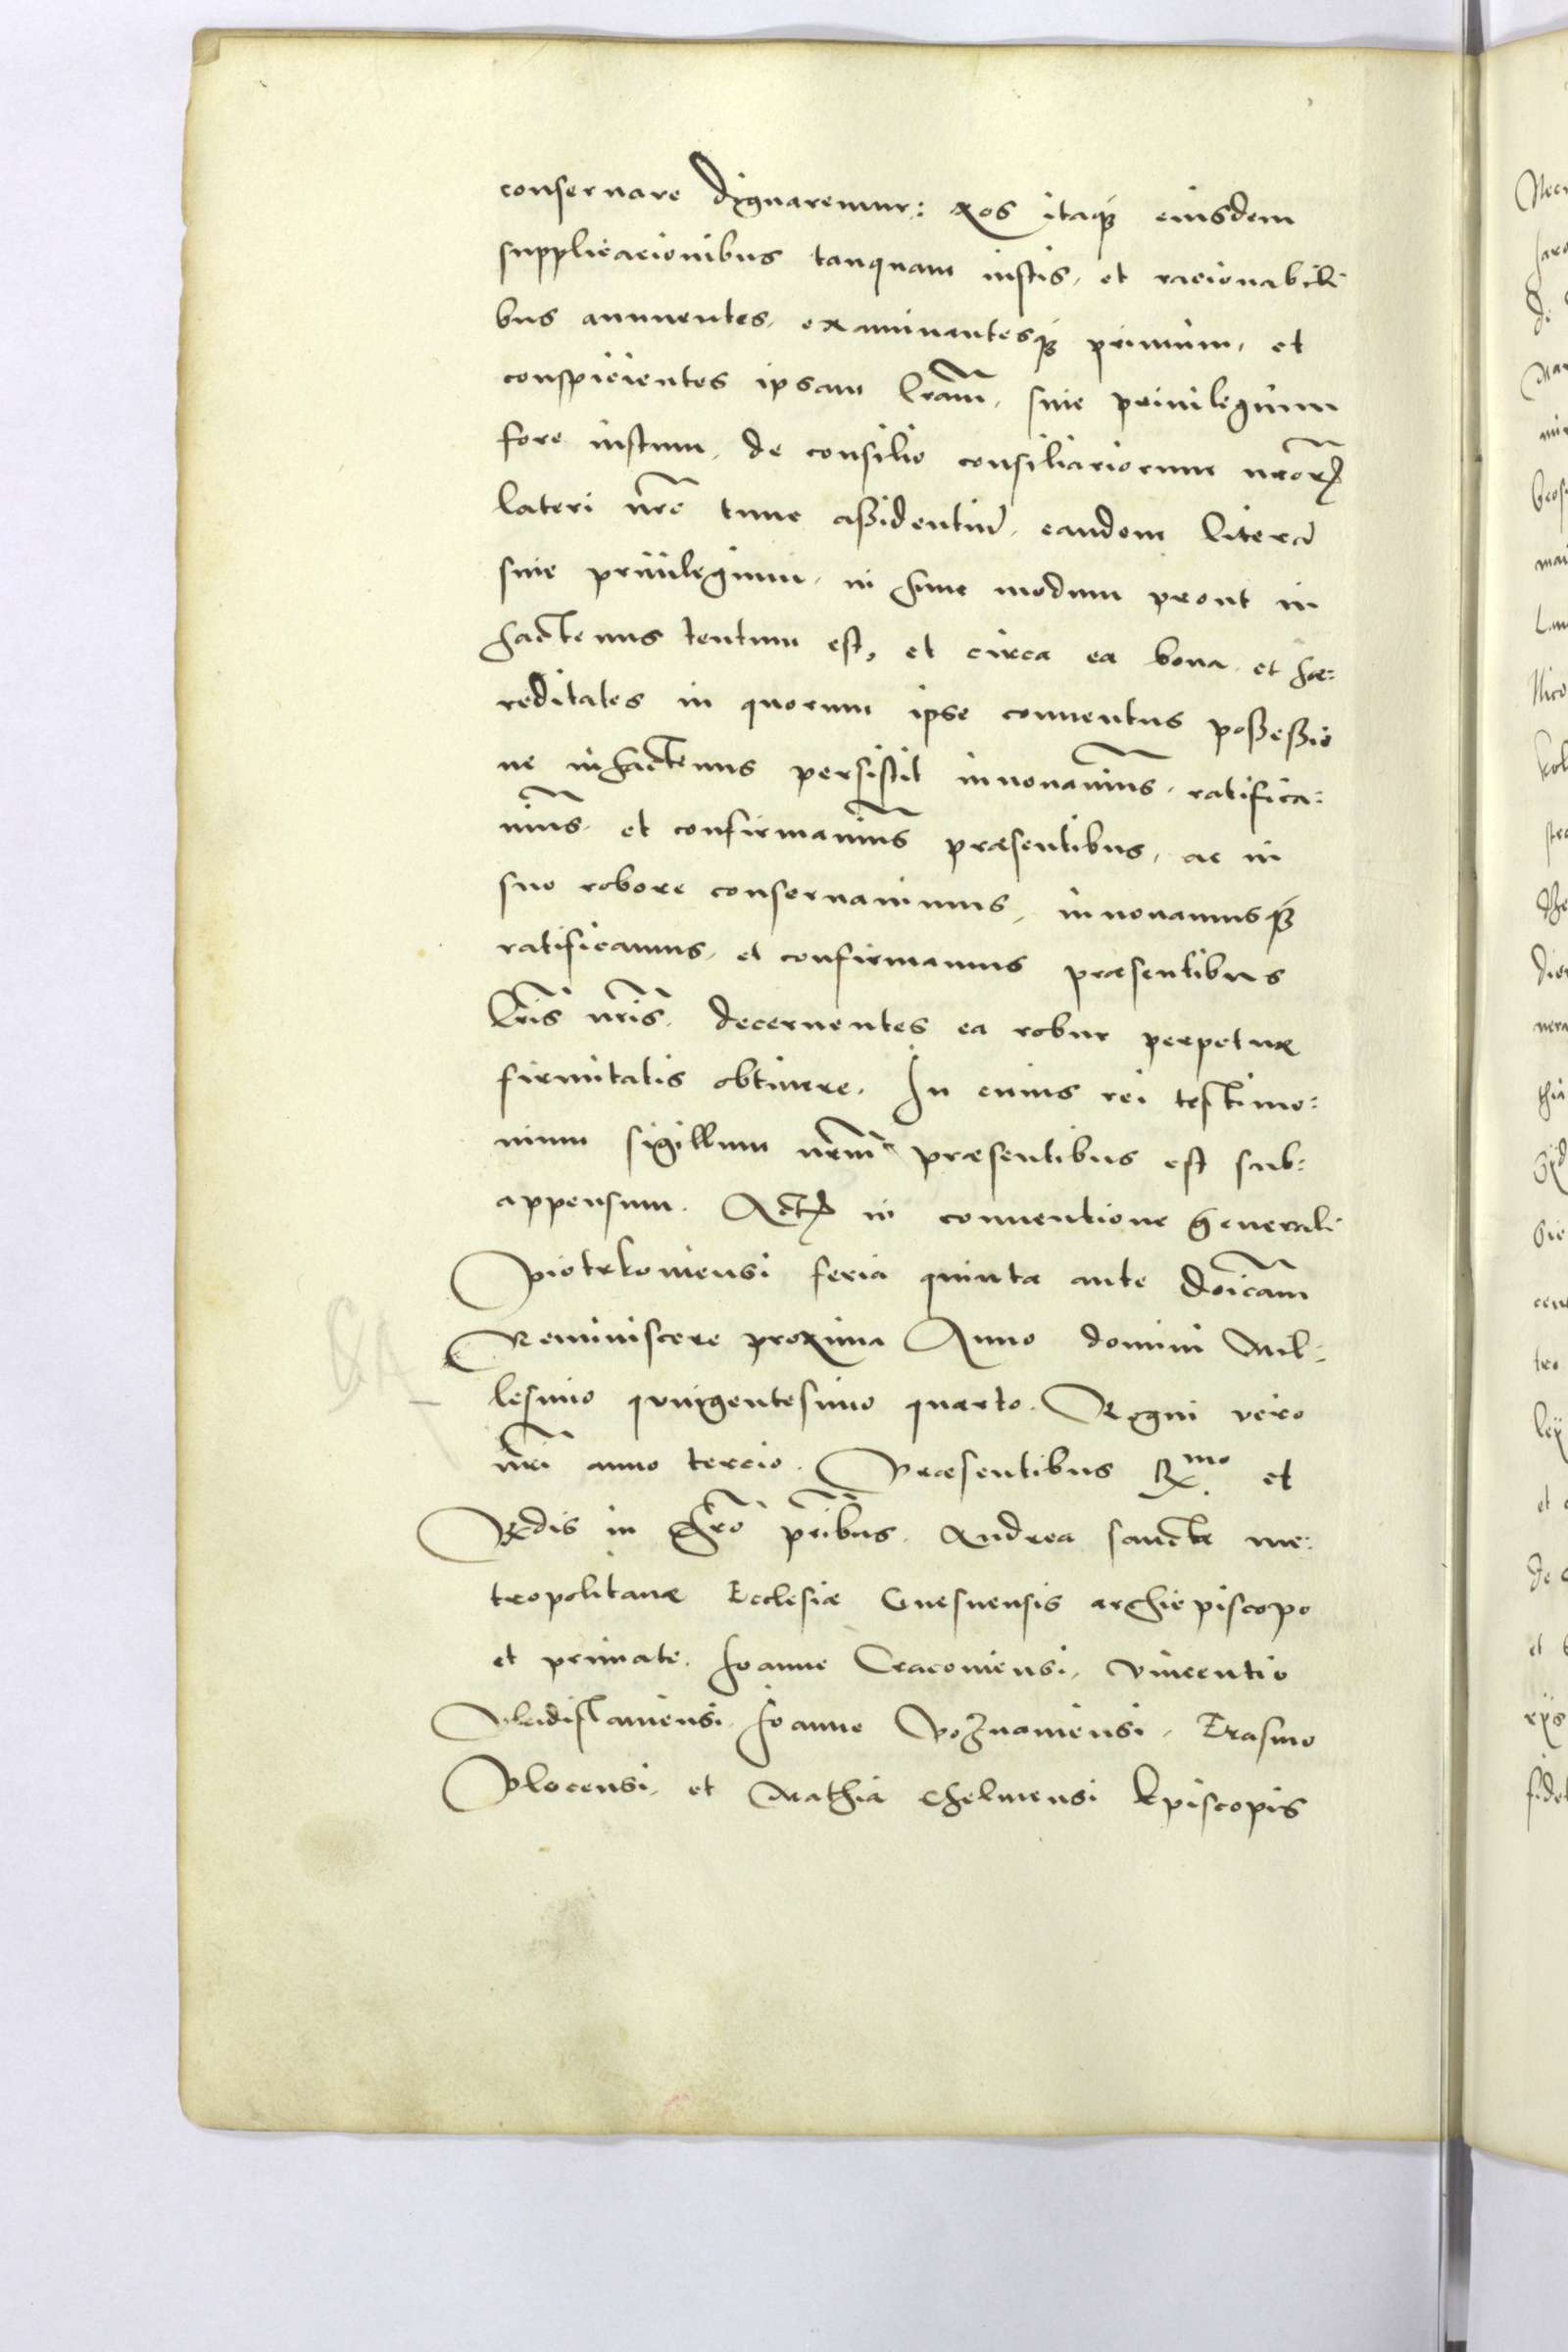 conseruare dignaremur: Nos itaq3 eiusdem
supplicacionibus tanquam iustis, et racionabili
bus annuentes, examinantesq3 primum, et
conspicientes ipsam lr̃am, siue priuilegium
fore iustum, de consilio consiliariorum nr̃orꝝ
lateri nr̃o tunc aßidentiũ, eandem literã
siue priuilegium, in hunc modum prout in
hactenus tentum est, et circa ea bona et hæ:
reditates in quorum ipse conuentus poßeßio
ne inhactenus persistit innouauim̃us, ratifica:
uim̃us, et confirmauim̃us præsentibus, ac in
suo robore conseruauimus, innouamusq3
ratificamus, et confirmamus præsentibus
lr̃is nr̃is, decernentes ea robur perpetuæ
firmitatis obtinere. In cuius rei testimo:
nium sigillum nr̃um præsentibus est sub:
appensum. Actꝝ in conuentione generali
Piotrkouiensi feria quinta ante Do͠icam
Reminiscere proxima Anno domini Mil:
lesimo quingentesimo quarto. Regni vero
nr̃i anno tercio. Præsentibus Rx.mo et
Rx̃dis in Chr̃o pr̃ibus. Andrea sanctæ me:
tropolitanæ Ecclesiæ Gnesnensis archiepiscopo
et primate. Joanne Cracouiensi, Vincentio
Vladislauiensi, Joanne Poznaniensi, Erasmo
Plocensi, et Mathia Chelmensi Episcopis